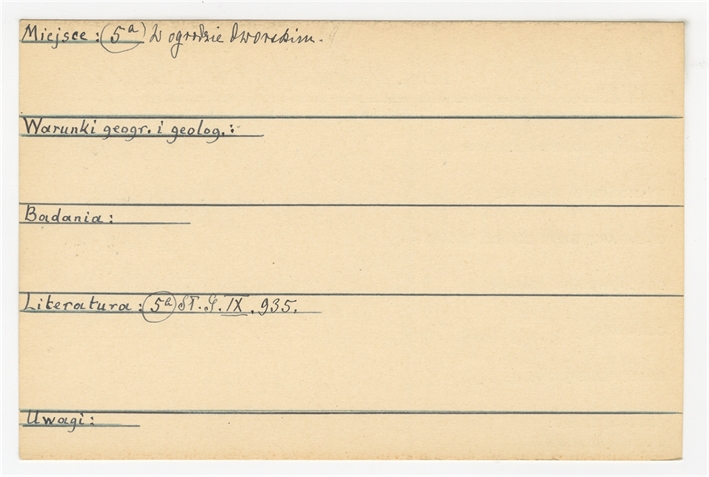 Miejsce: 5a W ogrodzie dworskim.
Warunki geogr. i geolog.:
Badania:
Literatura: 5a Sł. G. IX. 935.
Uwagi: